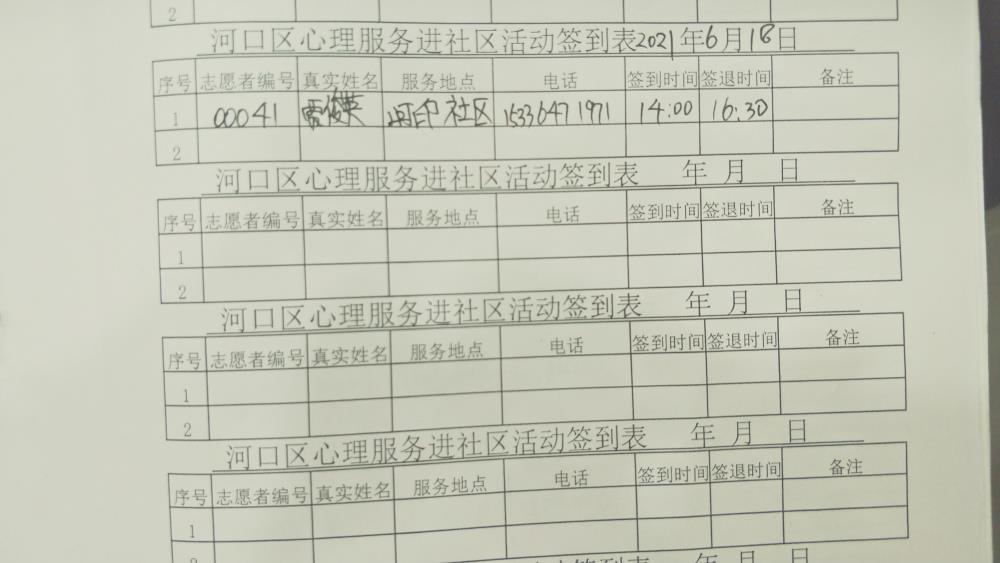 2
河口区心理服务进社区活动签到表2021年6月18日
序号 志愿者编号 真实姓名 服务地点 电话 签到时间 签退时间 备注
1 00041 贾俊英 河印社区 15336471971 14:00 16:30
2
河口区心理服务进社区活动签到表 年 月 日
序号 志愿者编号 真实姓名 服务地点 电话 签到时间 签退时间 备注
1
2
河口区心理服务进社区活动签到表 年 月 日
序号 志愿者编号 真实姓名 服务地点 电话 签到时间 签退时间 备注
1
2
河口区心理服务进社区活动签到表 年 月 日
序号 志愿者编号 真实姓名 服务地点 电话 签到时间 签退时间 备注
1
年 月 日